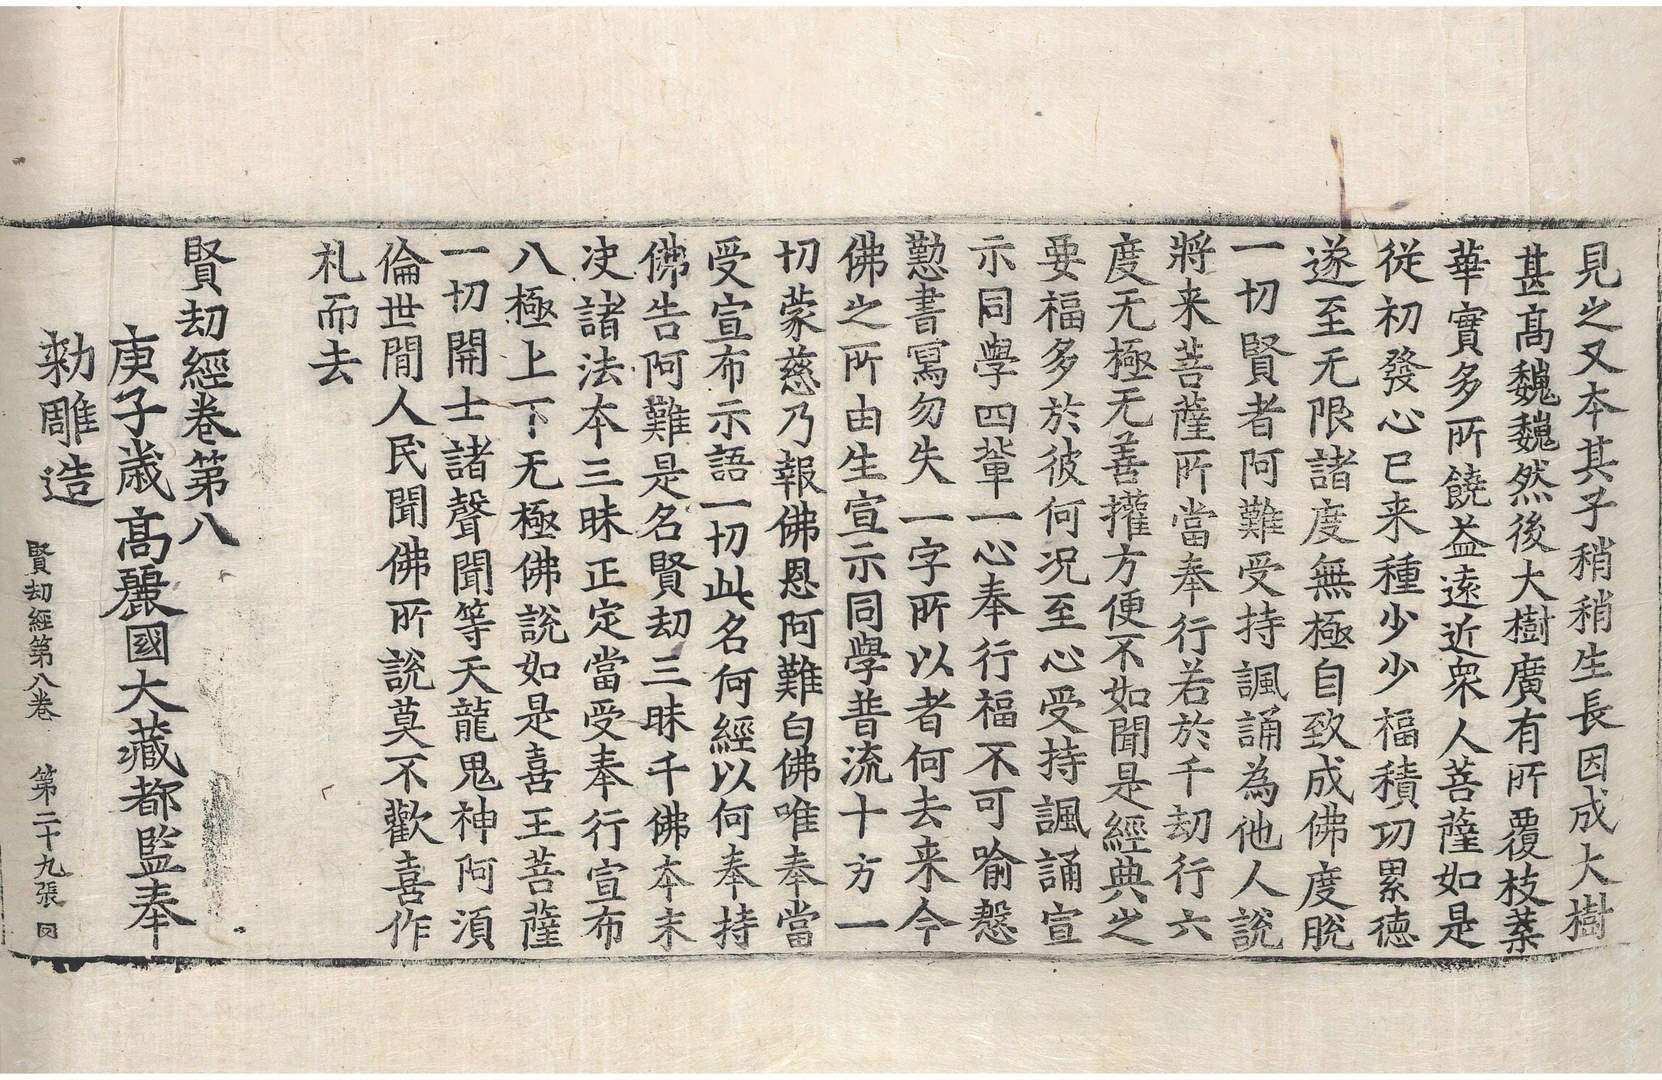 見之又本其子稍稍生長因成大樹
甚髙巍巍然後大樹廣有所覆枝葉
華實多所饒益遠近衆人菩薩如是
從初發心已来種少少福積功累德
遂至无限諸度無極自致成佛度脫
一切賢者阿難受持諷誦為他人說
將来菩薩所當奉行若於千劫行六
度无極无善權方便不如聞是經典之
要福多於彼何況至心受持諷誦宣
示同學四輩一心奉行福不可喻慇
懃書寫勿失一字所以者何去来今
佛之所由生宣示同學普流十方一
切蒙慈乃報佛恩阿難白佛唯奉當
受宣布示語一切此名何經以何奉持
佛告阿難是名賢劫三昧千佛本末
决諸法本三昧正定當受奉行宣布
八極上下无極佛說如是喜王菩薩
一切開士諸聲聞等天龍鬼神阿須
倫世間人民聞佛所說莫不歡喜作
礼而去
賢劫經卷第八
庚子歲髙麗國大藏都監奉
勑雕造
賢劫經第八卷 第二十九張 㘝